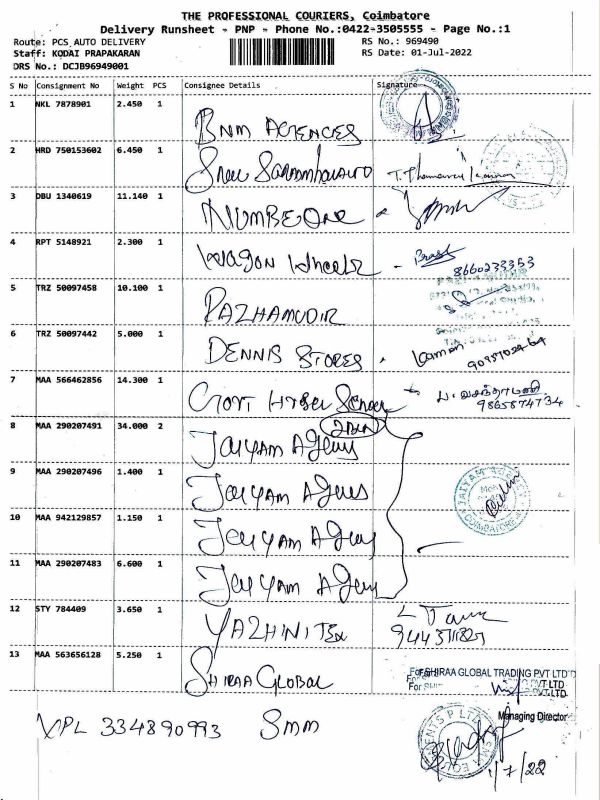 THE PROFESSIONAL COURIERS, Coimbatore
Delivery Runsheet - PNP - Phone No.:0422-3505555 - Page No.:1
Route: PCS AUTO DELIVERY RS No.: 969490
Staff: KODAI PRAPAKARAN RS Date: 01-Jul-2022
DRS No.: DCJB96949001
S No Consignment No Weight PCS Consignee Details Signature
1 NKL 7878901 2.450 1
BNM AGENCES
2 HRD 750153602 6.450 1
Sree
3 DBU 1340619 11.140 1
NUMBEONE
4 RPT 5148921 2.300 1
Wagon Wheels
8660233353
5 TRZ 50097458 10.100 1
PAZHAMUDIR
6 TRZ 50097442 5.000 1
DENNIS STORES
7 MAA 566462856 14.300 1
Govt
9865874734
8 MAA 290207491 34.000 2
JAIYAM Agency
9 MAA 290207496 1.400 1
JAIYAM Agenes
JAIYAM
COIMBATORE
10 MAA 942129857 1.150 1
JAIYAM Agency
11 MAA 290207483 6.600 1
JAIYAM Agency
12 STY 784409 3.650 1
YAZHINI Tex
13 MAA 563656128 5.250 1
SHIRAA GLOBAL
For SHIRAA GLOBAL TRADING PVT LTD
Managing Director
VPL 334890993 SMM
1/7/22